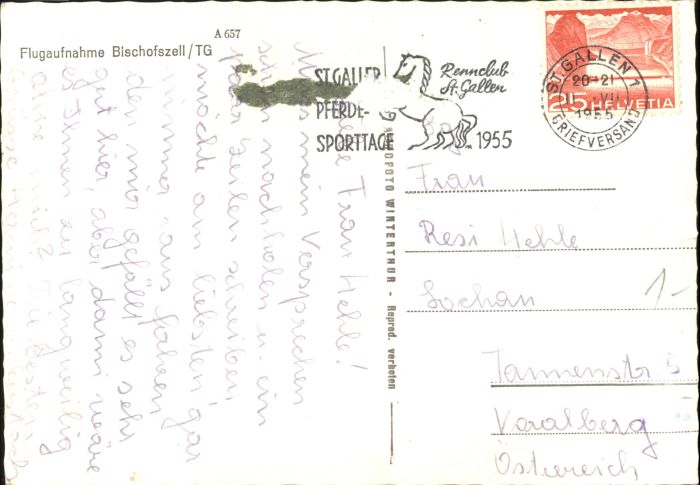 A 657
Flugaufnahme Bischofszell/TG
ST. GALLER
PFERDE-
SPORTTAGE
Rennclub
St. Gallen
1955
ST. GALLEN 1
20-21
VII
1955
BRIEFVERSAND
25 HELVETIA
FOTO WINTERTHUR - Reprod. verboten
Frau
Resi Hehle
Lochau
Tannenstr 5
Voralberg
Österreich
1-
Liebe Frau Hehle!
Muss mein Versprechen
schon nachholen u. ein
paar Zeilen schreiben,
möchte am liebsten gar
immer
mir gefällt es sehr
gut hier, aber dann wäre
es Ihnen zu langweilig